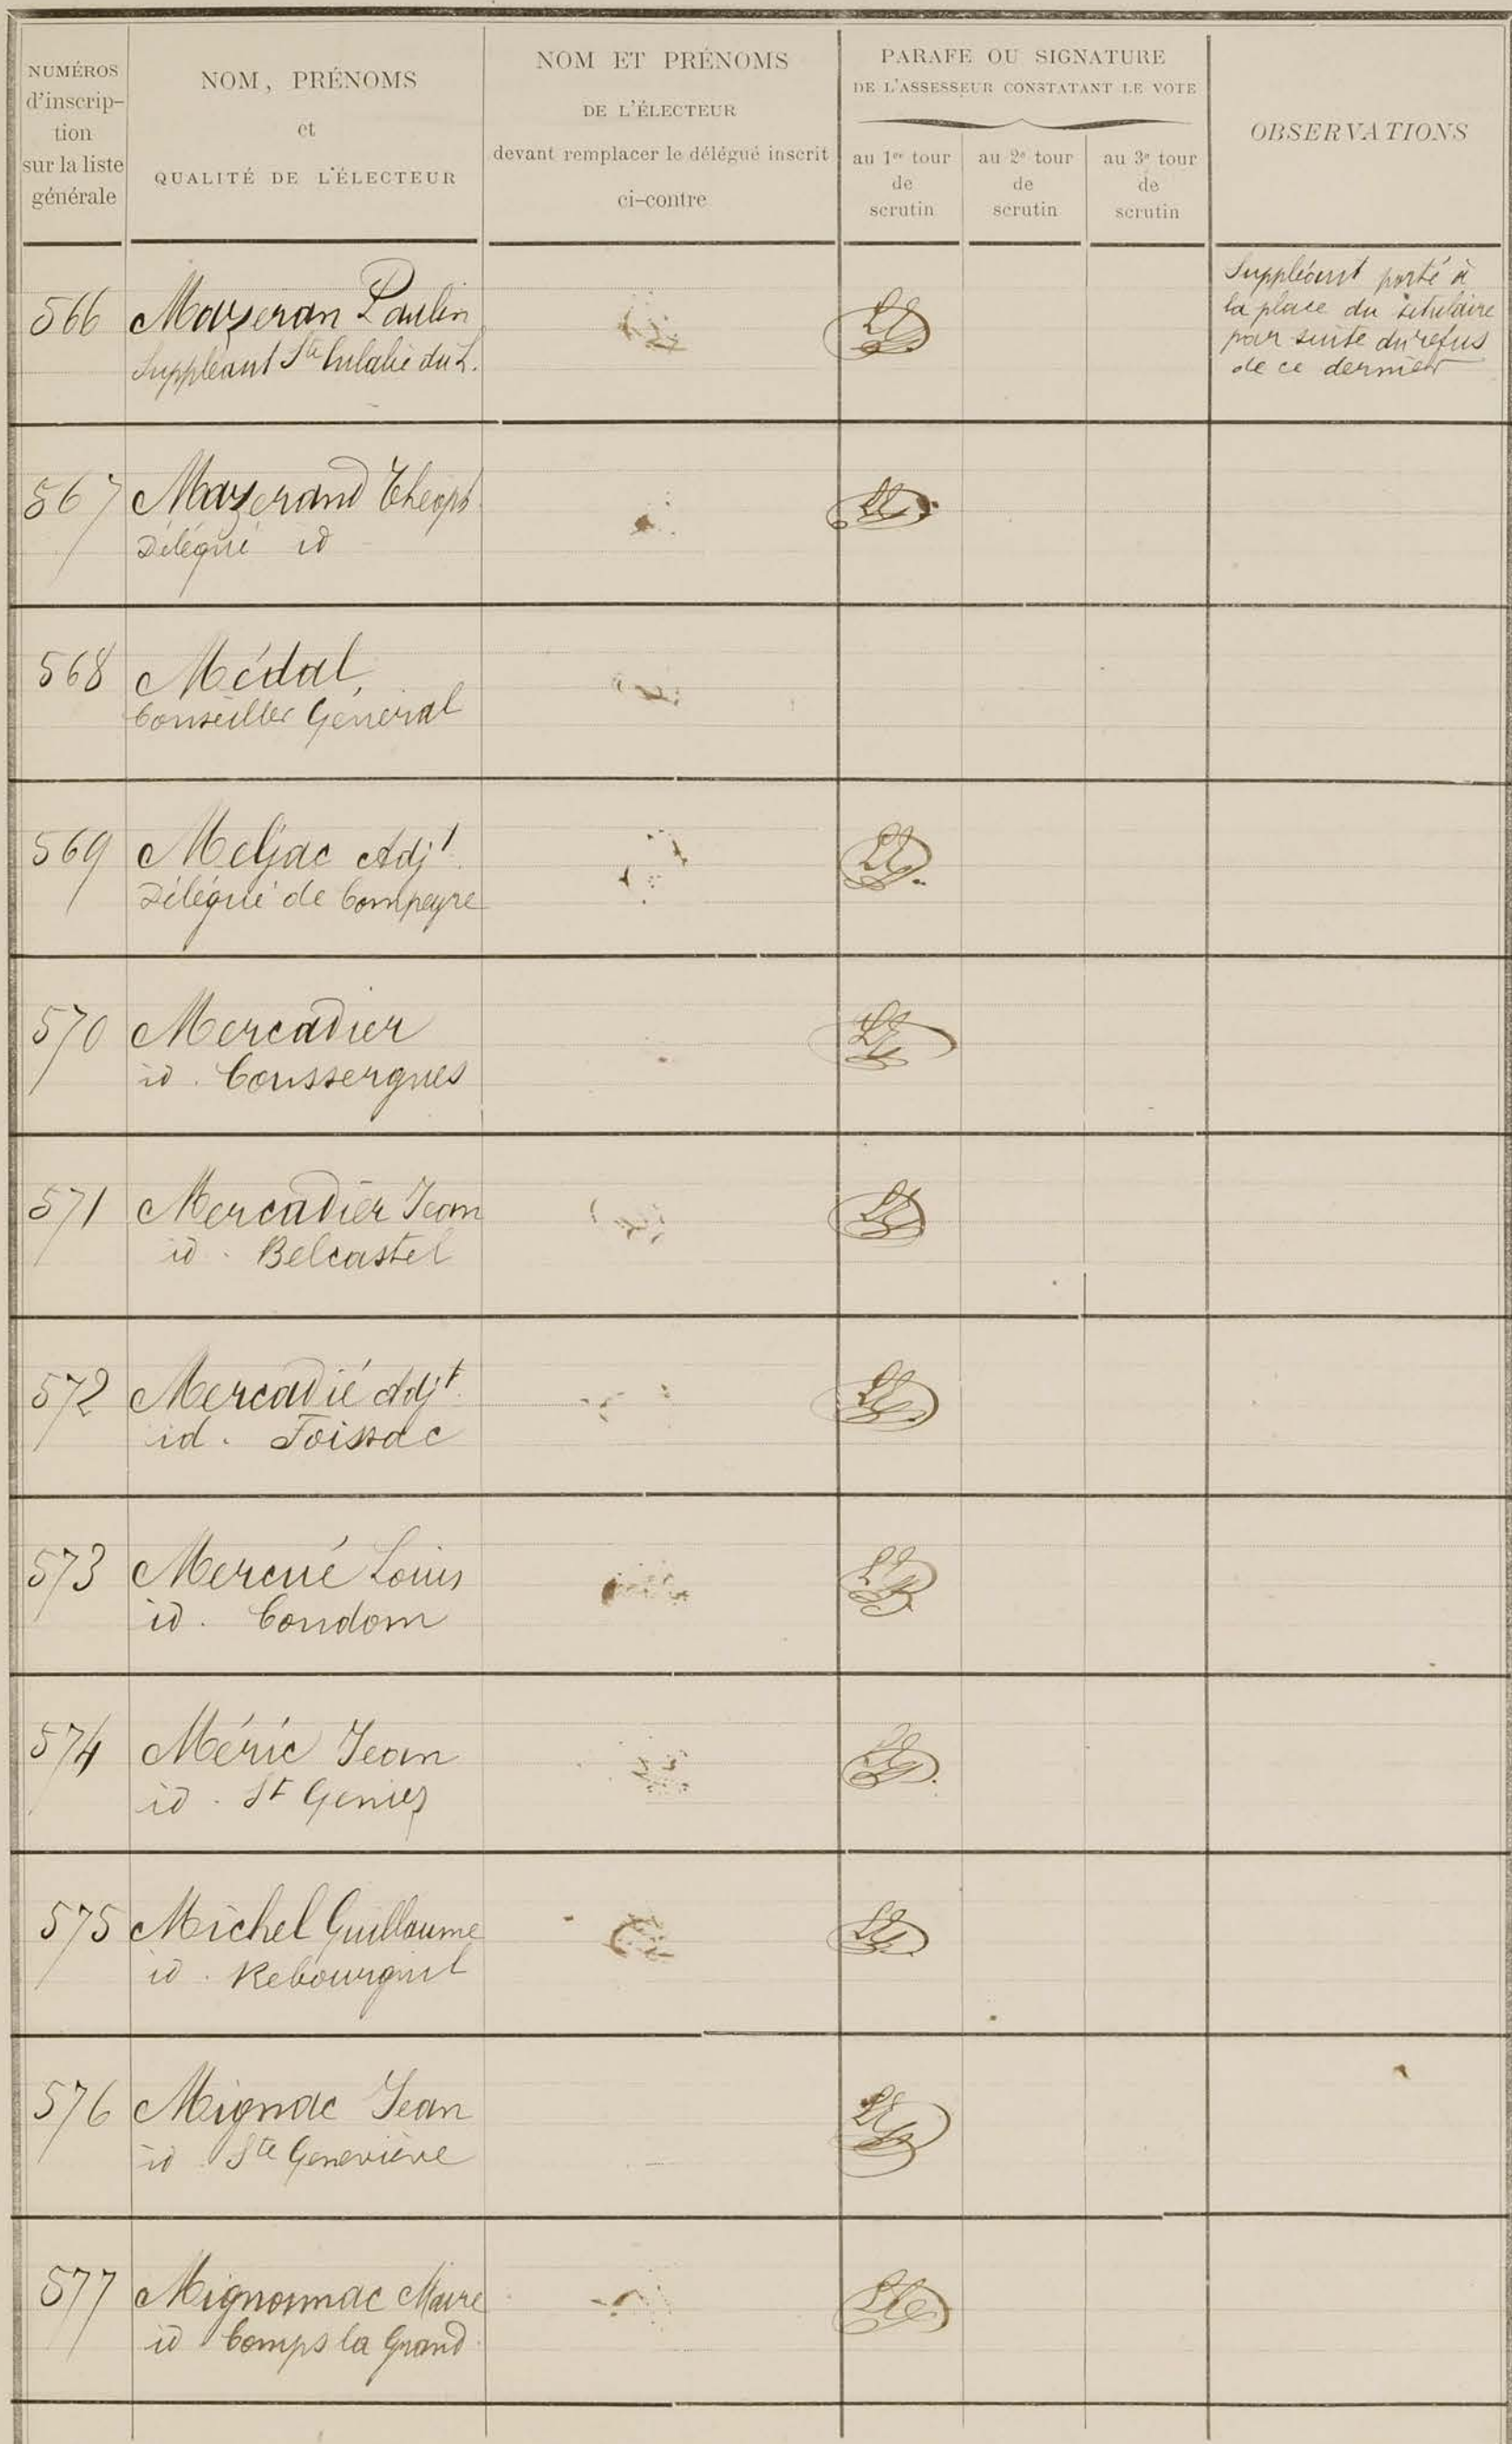 NUMÉROS
d'inscrip-
tion
sur la liste
générale
NOM, PRÉNOMS
et
QUALITÉ DE L'ÉLECTEUR
NOM ET PRÉNOMS
DE L'ÉLECTEUR
devant remplacer le délégué inscrit
ci-contre
PARAFE OU SIGNATURE
DE L'ASSESSEUR CONSTATANT LE VOTE
au 1er tour
de
scrutin
au 2e tour
de
scrutin
au 3e tour
de
scrutin
OBSERVATIONS
566 Mazeran Paulin
Suppléant Ste Eulalie du L.
Suppléant porté à
la place du titulaire
par suite du refus
de ce dernier
567 Mazerand Theoph
Délégué id
568 Médal,
Conseiller Général
569 Meljac Adjt
Délégué de Compeyre
570 Mercadier
id. Coussergues
571 Mercadier Jean
id. Belcastel
572 Mercadié Adjt
id. Foissac
573 Mercué Louis
id. Condom
574 Méric Jean
id. St Geniez
575 Michel Guillaume
id. Rebourguil
576 Mignac Jean
id Ste Geneviève
577 Mignonnac Maire
id Comps la Grand